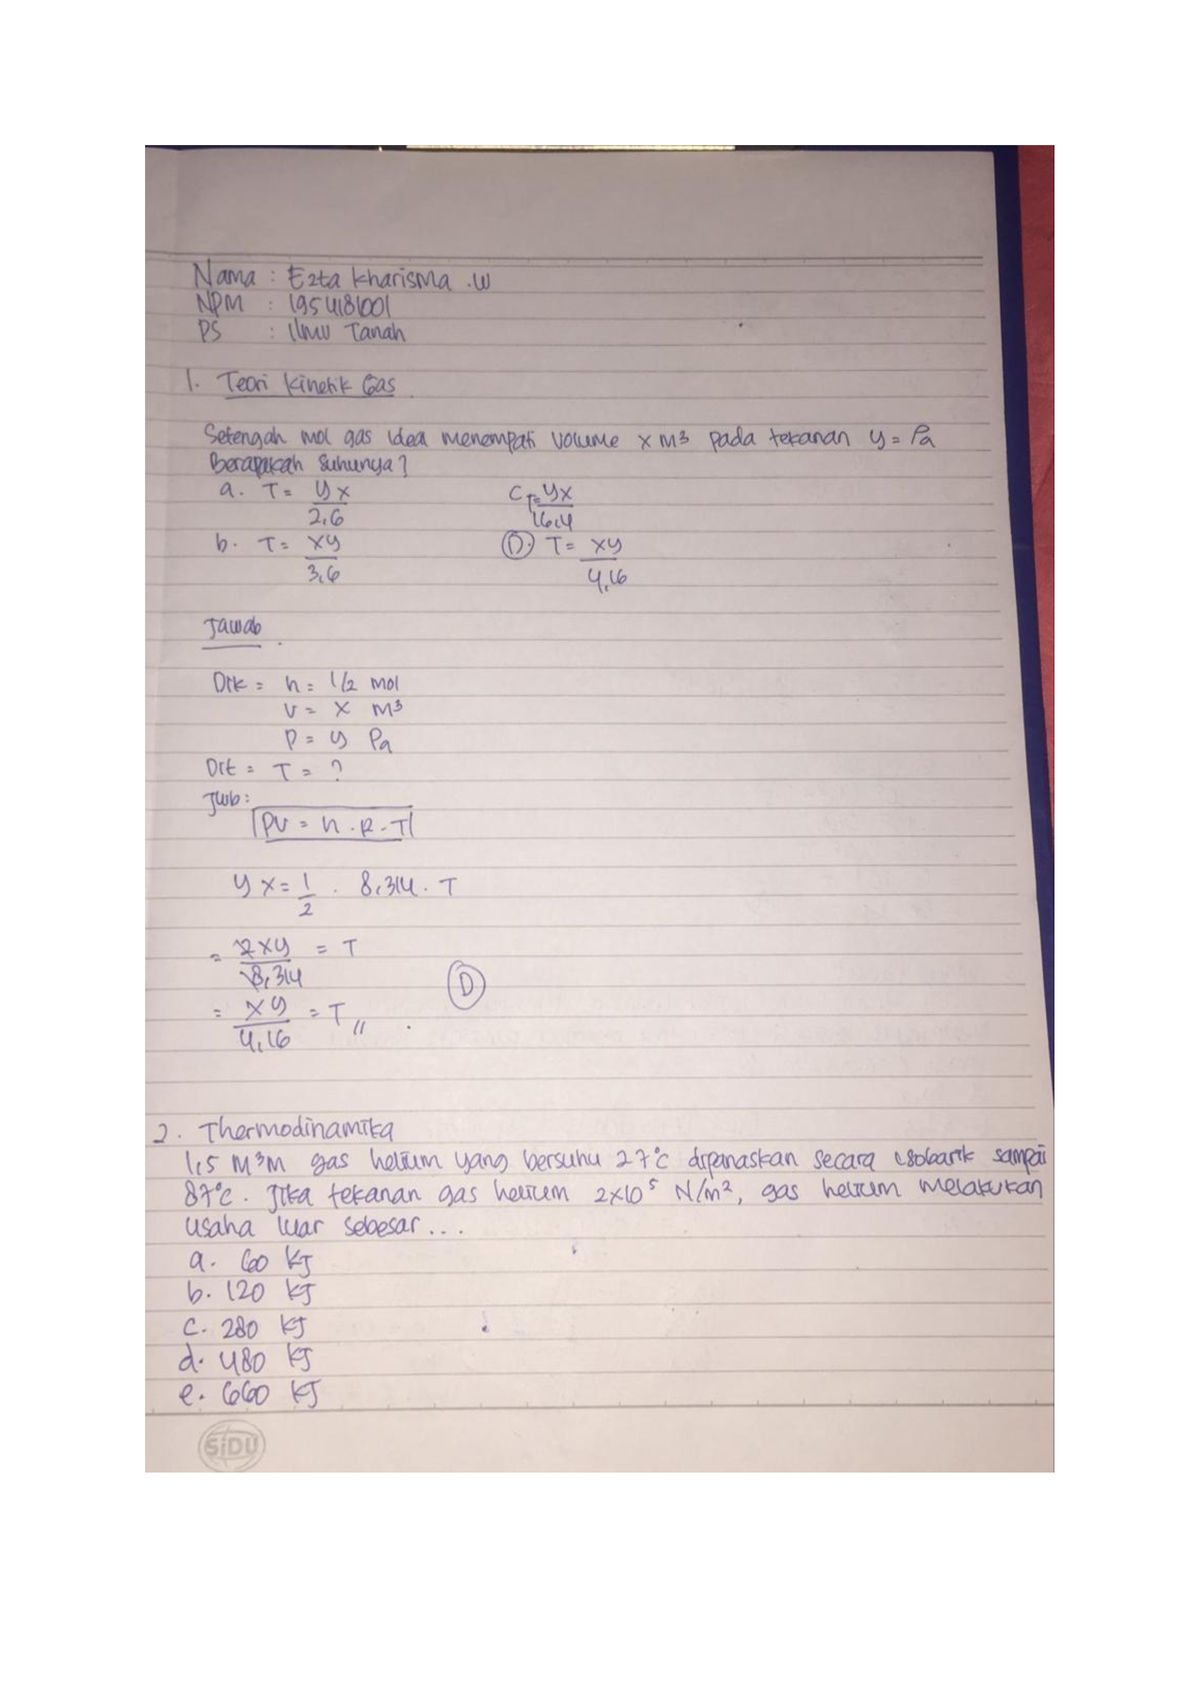 Nama : Ezta Kharisma .W
NPM : 1954181001
PS : Ilmu Tanah
1. Teori Kinetik Gas
Setengah mol gas idea menempati volume x M³ pada tekanan y = Pa
Berapakah suhunya?
a. T = yx/2,6 C T = yx/16,4
b. T = xy/3,6 D. T = xy/4,16
Jawab
Dik = n = 1/2 mol
V = x M³
P = y Pa
Dit = T = ?
Jwb :
PV = n . R . T
yx = 1/2 . 8,314 . T
= 2xy/8,314 = T
= xy/4,16 = T,, D
2. Thermodinamika
1,5 M³M gas helium yang bersuhu 27°c dipanaskan secara isobarik sampai
87°c. Jika tekanan gas helium 2x10⁵ N/m², gas helium melakukan
usaha luar sebesar ...
a. 60 kJ
b. 120 kJ
c. 280 kJ
d. 480 kJ
e. 660 kJ
SiDU